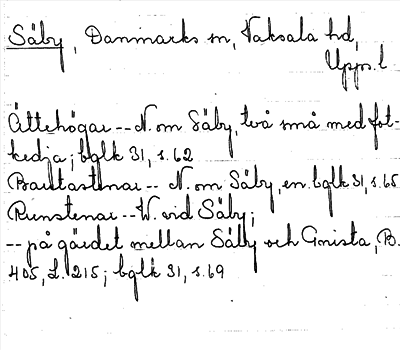 Säby, Danmarks sn, Vaksala hd,
Upps. l
Ättehögar -- N. om Säby, två små med fot-
kedja; bglk 31, s. 62
Bautastenar -- N. om Säby, en. bglk 31, s. 65
Runstenar -- W. vid Säby;
-- på gärdet mellan Säby och Gnista, B.
405, L. 215; bglk 31, s. 69